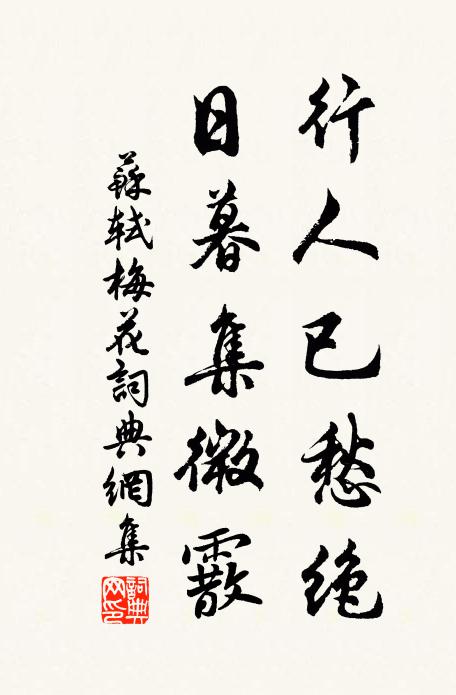 行人已愁绝
日暮集微霰
蘇軾梅花詞典網集
詞典網印